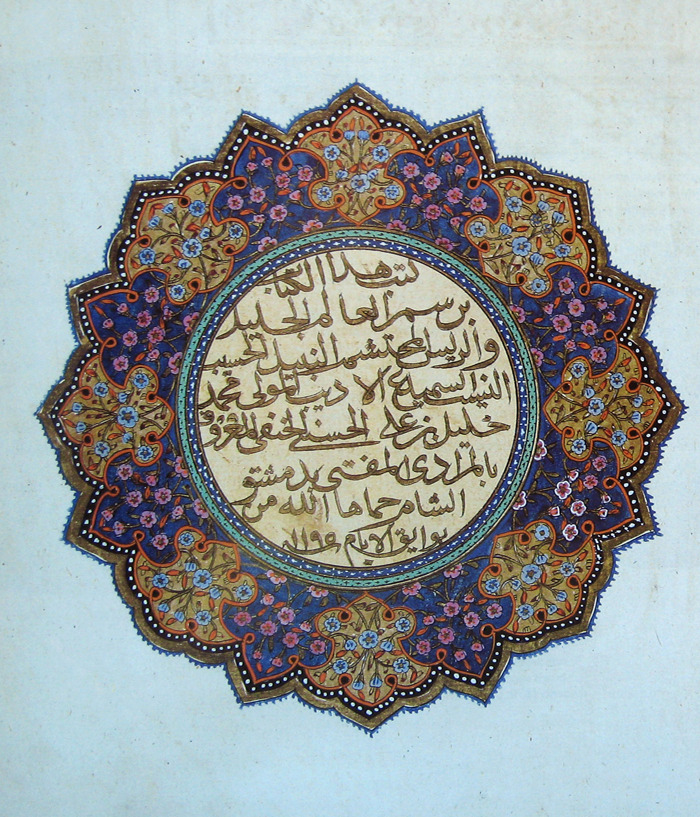 كتب هذا الكتاب
برسم العالم الجليل
والرئيس المحتشم النبيل الحسيب
النسيب السميدع الاديب المولى محمد
خليل بن علي الحسيني الحنفي المعروف
بالمرادي المفتي بدمشق
الشام حماها الله من
بوايق الايام ١١٩٤